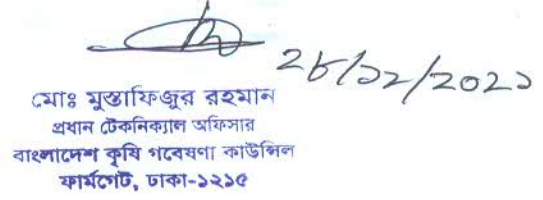 ২৮/১২/২০২১
মোঃ মুস্তাফিজুর রহমান
প্রধান টেকনিক্যাল অফিসার
বাংলাদেশ কৃষি গবেষণা কাউন্সিল
ফার্মগেট, ঢাকা-১২১৫